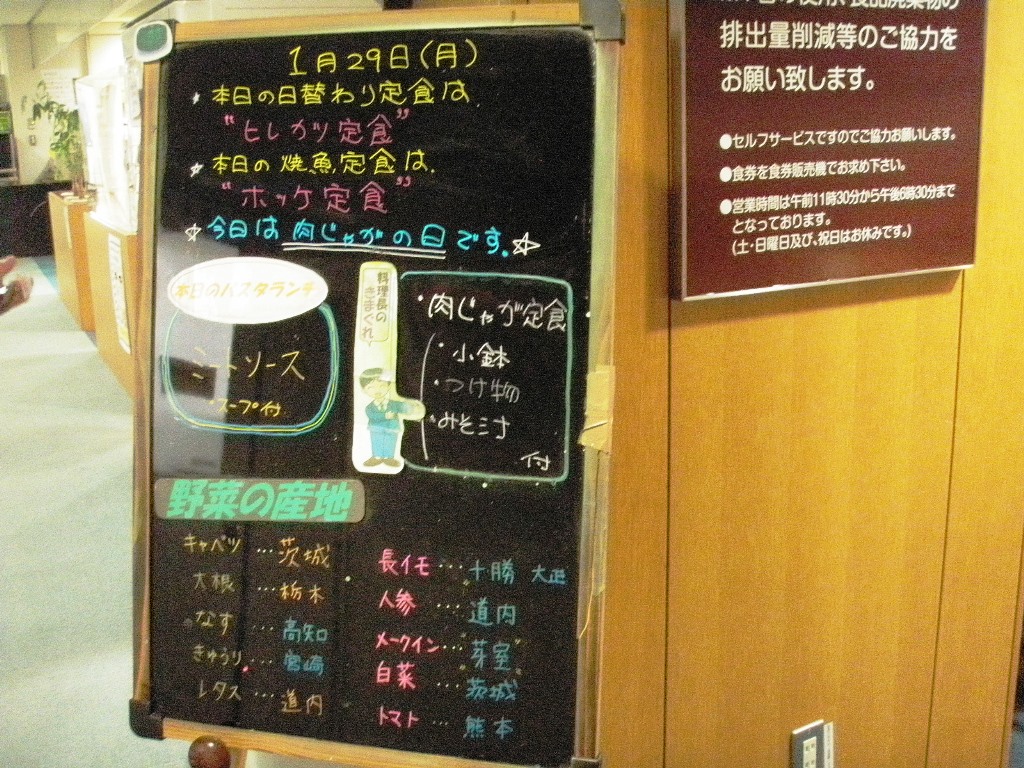 1月29日(月)
本日の日替わり定食は
"ヒレカツ定食"
本日の焼魚定食は
"ホッケ定食"
☆今日は肉じゃがの日です。☆
本日のパスタランチ
ミートソース
・スープ付
料理長の
きまぐれ
・肉じゃが定食
・小鉢
・つけ物
・みそ汁
付
野菜の産地
キャベツ…茨城
大根…栃木
なす…高知
きゅうり…宮崎
レタス…道内
長イモ…十勝 大正
人参…道内
メークイン…芽室
白菜…茨城
トマト…熊本
排出量削減等のご協力を
お願い致します。
●セルフサービスですのでご協力お願いします。
●食券を食券販売機でお求め下さい。
●営業時間は午前11時30分から午後6時30分まで
となっております。
(土・日曜日及び、祝日はお休みです。)